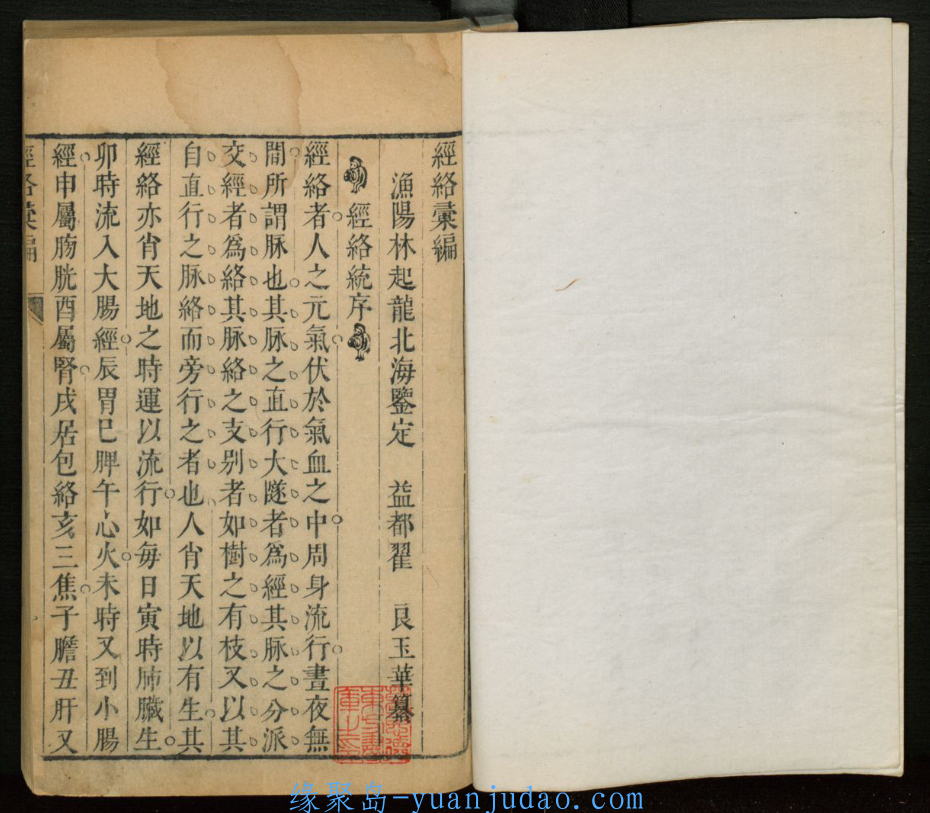 經絡彙編
漁陽林起龍北海鑒定 益都翟 良玉華纂
經絡統序
經絡者人之元氣伏於氣血之中周身流行晝夜無
間所謂脉也其脉之直行大隧者爲經其脉之分派
交經者爲絡其脉絡之支别者如樹之有枝又以其
自直行之脉絡而旁行之者也人肖天地以有生其
經絡亦肖天地之時運以流行如毎日寅時肺臟生
卯時流入大腸經辰胃巳脾午心火未時又到小腸
經申屬膀胱酉屬腎戌居包絡亥三焦子膽丑肝又
經絡彙編
缘聚岛-yuanjudao.com